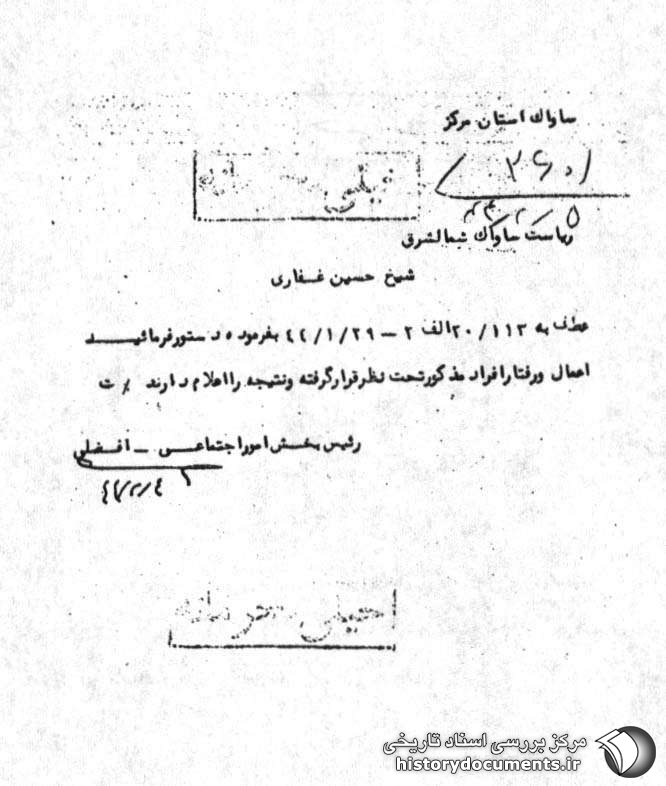 ساواک استان مرکز
خیلی محرمانه
ریاست ساواک شمالشرق
شیخ حسین غفاری
عطف به ۲۰/۱۱۳الف ۲ – ۴۲/۱/۲۹ بفرموده دستور فرمائیــد
اعمال و رفتار افراد مذکور تحت نظر قرار گرفته و نتیجه را اعلام دارند
رئیس بخش امور اجتماعی – افضلی
خیلی محرمانه
مرکز بررسی اسناد تاریخی
historydocuments.ir